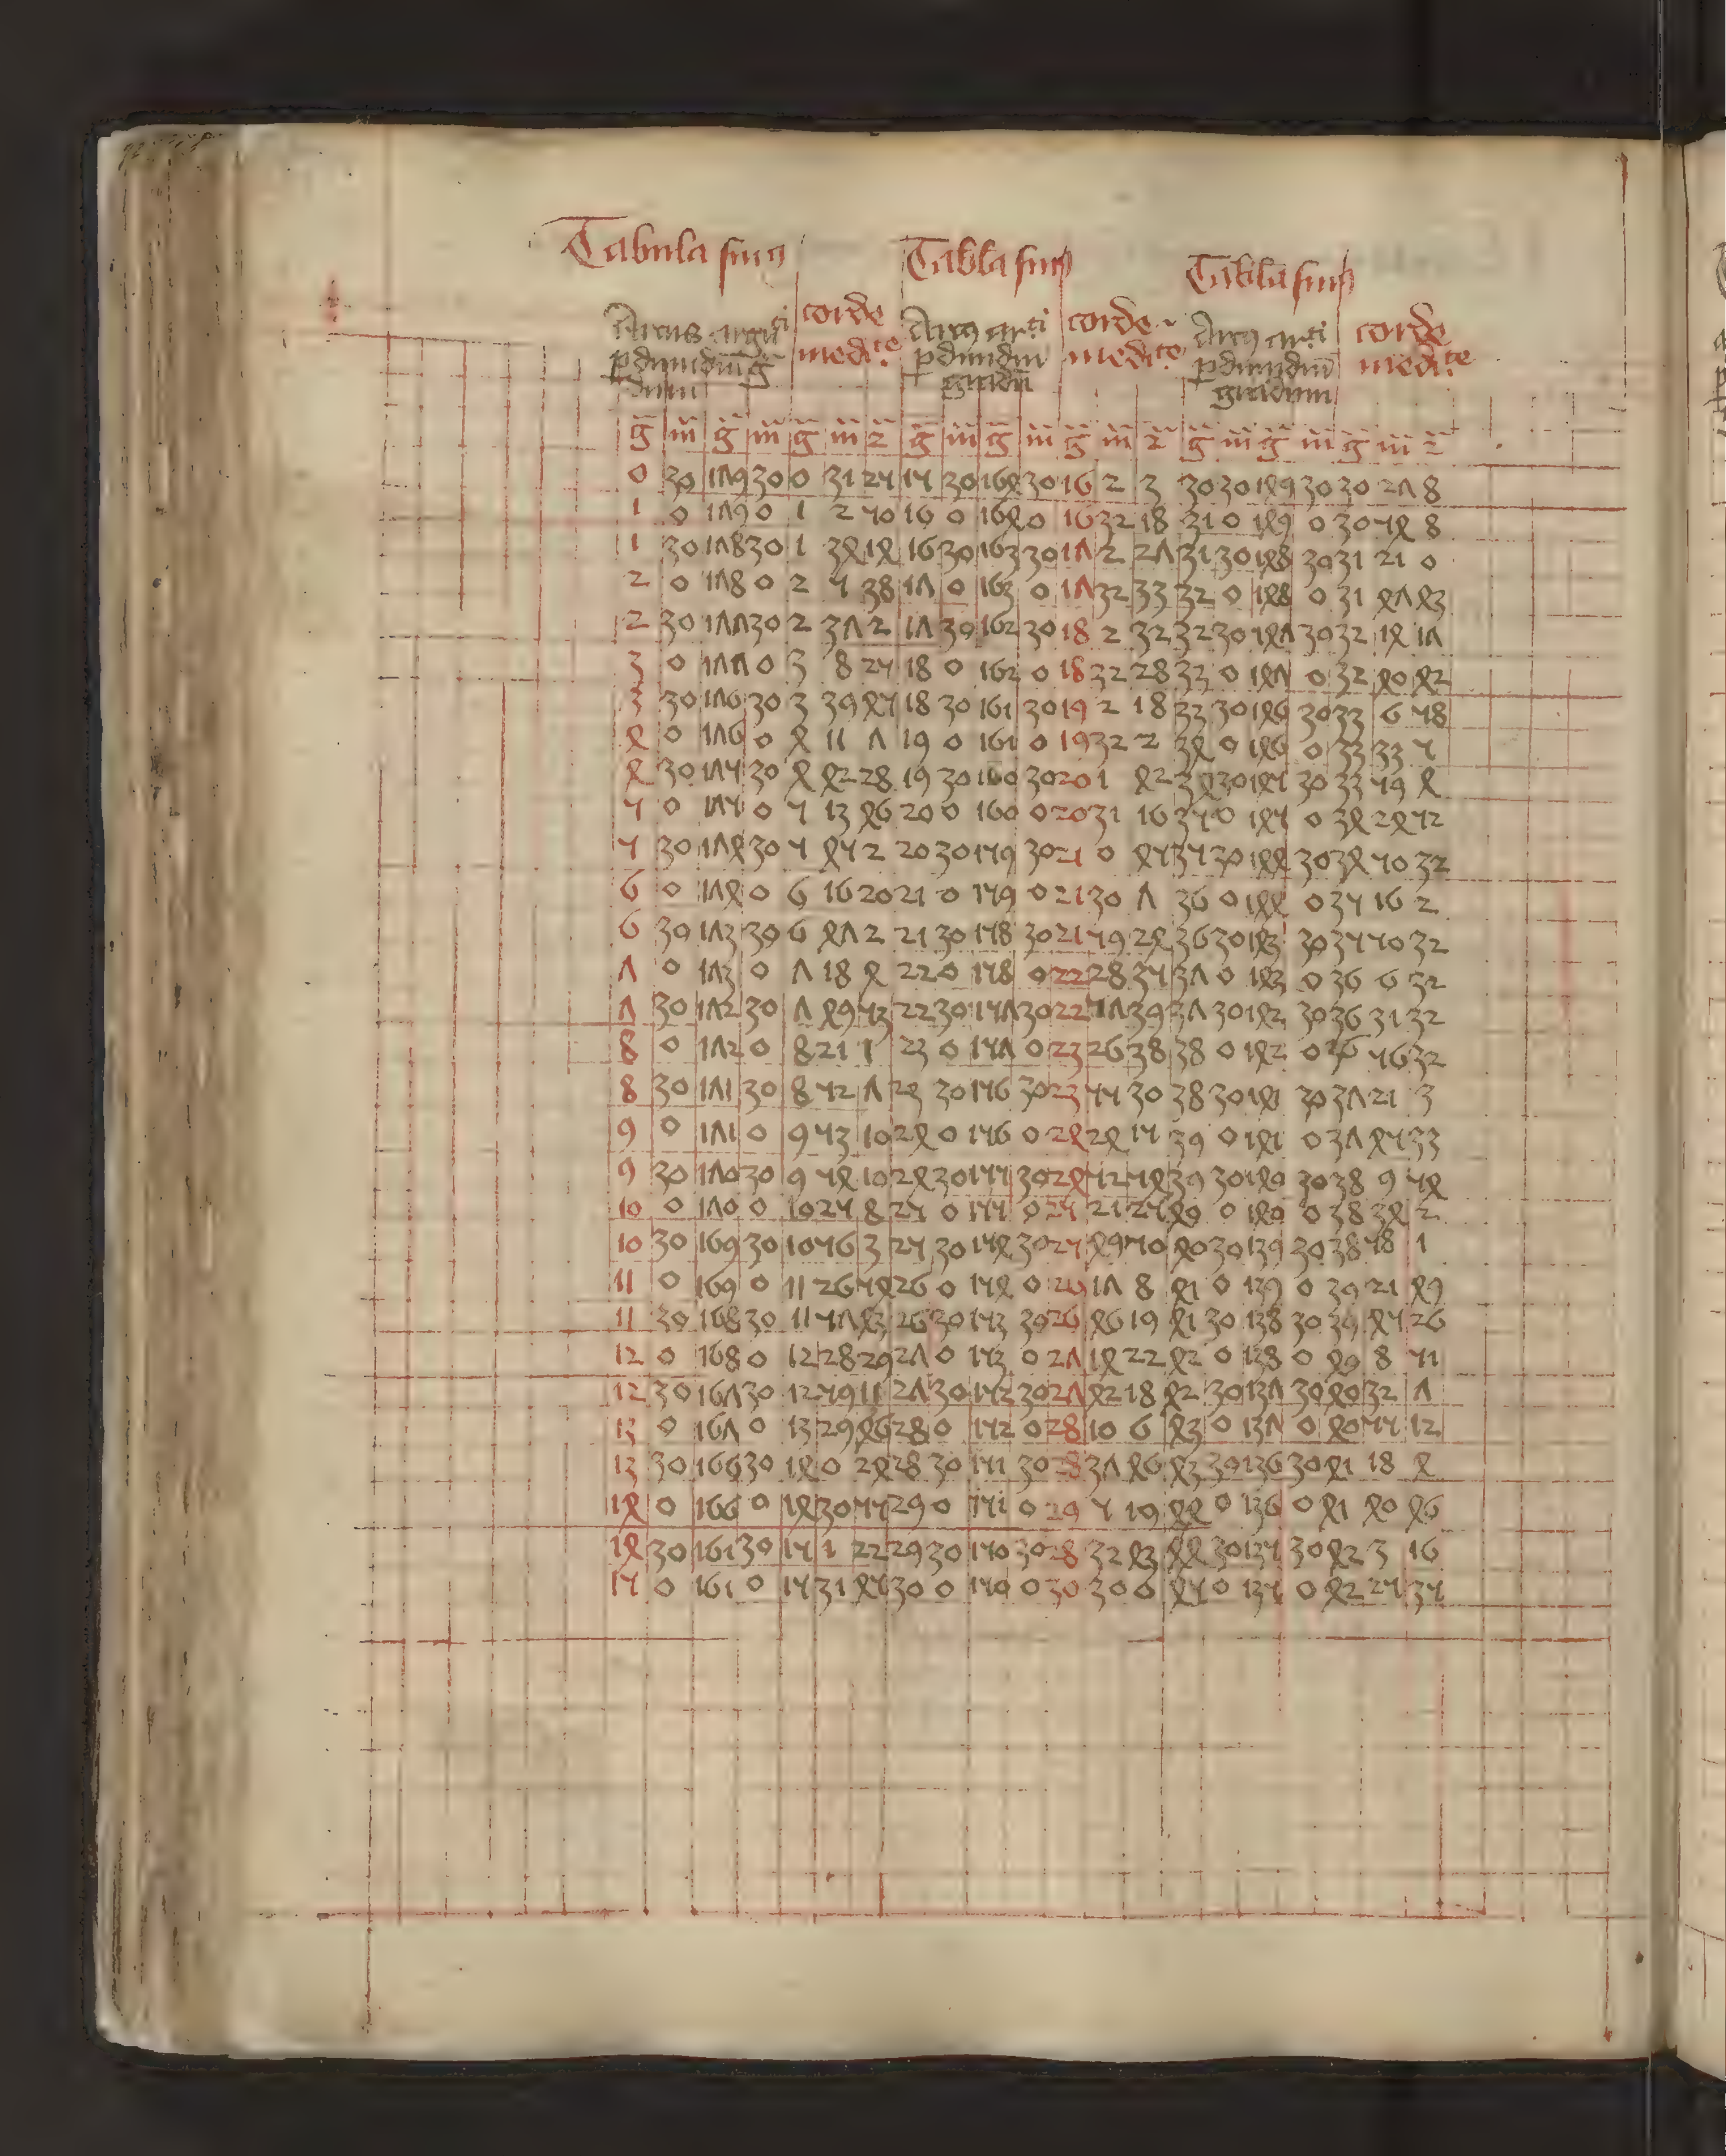 Tabula sinus Tabla sinus Tabla sinus
Arcus argti corde Arcus arti corde Arcus arti corde
p dimidiu g medi.te p dimidiu medi.te p dimidiu medi.te
dum gradu gradum
g m g m g m 2 g m g m g m 2 g m g m g m 2
0 30 179 30 0 31 25 15 30 164 30 16 2 3 30 30 149 30 30 27 8
1 0 179 0 1 2 50 16 0 164 0 16 32 18 31 0 149 0 30 54 8
1 30 178 30 1 34 14 16 30 163 30 17 2 27 31 30 148 30 31 21 0
2 0 178 0 2 5 38 17 0 163 0 17 32 33 32 0 148 0 31 47 43
2 30 177 30 2 37 2 17 30 162 30 18 2 32 32 30 147 30 32 14 17
3 0 177 0 3 8 25 18 0 162 0 18 32 28 33 0 147 0 32 40 42
3 30 176 30 3 39 45 18 30 161 30 19 2 18 33 30 146 30 33 6 58
4 0 176 0 4 11 7 19 0 161 0 19 32 2 34 0 146 0 33 33 5
4 30 175 30 4 42 28 19 30 160 30 20 1 42 34 30 145 30 33 59 4
5 0 175 0 5 13 46 20 0 160 0 20 31 16 35 0 145 0 34 24 52
5 30 174 30 5 45 2 20 30 159 30 21 0 45 35 30 144 30 34 50 32
6 0 174 0 6 16 20 21 0 159 0 21 30 7 36 0 144 0 35 16 2
6 30 173 30 6 47 2 21 30 158 30 21 59 24 36 30 143 30 35 50 32
7 0 173 0 7 18 4 22 0 158 0 22 28 35 37 0 143 0 36 6 32
7 30 172 30 7 49 53 22 30 157 30 22 57 39 37 30 142 30 36 31 32
8 0 172 0 8 21 1 23 0 157 0 23 26 38 38 0 142 0 36 56 32
8 30 171 30 8 52 7 23 30 156 30 23 55 30 38 30 141 30 37 21 3
9 0 171 0 9 53 10 24 0 156 0 24 24 15 39 0 141 0 37 45 33
9 30 170 30 9 54 10 24 30 155 30 24 52 54 39 30 140 30 38 9 54
10 0 170 0 10 25 8 25 0 155 0 25 21 25 40 0 140 0 38 34 2
10 30 169 30 10 56 3 25 30 154 30 25 49 50 40 30 139 30 38 58 1
11 0 169 0 11 26 54 26 0 154 0 26 17 8 41 0 139 0 39 21 49
11 30 168 30 11 57 43 26 30 153 30 26 46 19 41 30 138 30 39 45 26
12 0 168 0 12 28 29 27 0 153 0 27 14 22 42 0 138 0 40 8 51
12 30 167 30 12 59 11 27 30 152 30 27 42 18 42 30 137 30 40 32 7
13 0 167 0 13 29 46 28 0 152 0 28 10 6 43 0 137 0 40 55 12
13 30 166 30 14 0 24 28 30 151 30 28 37 46 43 30 136 30 41 18 4
14 0 166 0 14 30 55 29 0 151 0 29 5 10 44 0 136 0 41 40 46
14 30 161 30 15 1 22 29 30 150 30 28 32 43 44 30 135 30 42 3 16
15 0 161 0 15 31 45 30 0 150 0 30 30 6 45 0 135 0 42 25 35